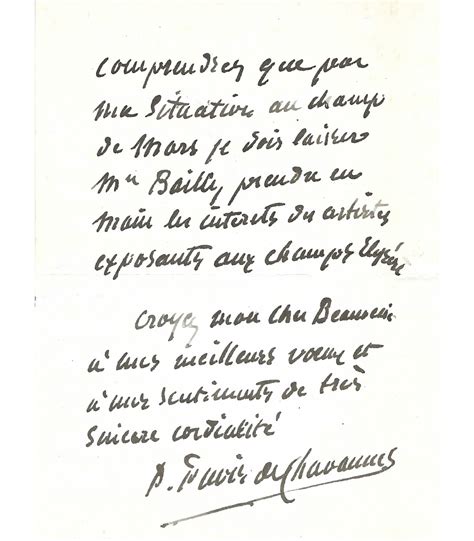 comprendrez que par
ma situation au champ
de Mars je dois laisser
Mr Bailly prendre en
main les interets des artistes
exposants aux champs Elysées
Croyez mon cher Beauvais
à mes meilleurs voeux et
à mes sentiments de très
sincere cordialité
P. Puvis de Chavannes